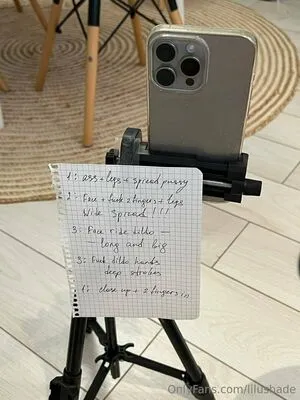 1: ass + legs + spread pussy
2: Face + fuck 2 fingers + legs
Wide spread !!!
3: Face ride dildo –
– long and big
3: Fuck dildo hands
deep strokes
1: close up + 2 fingers in
OnlyFans.com/lilushade